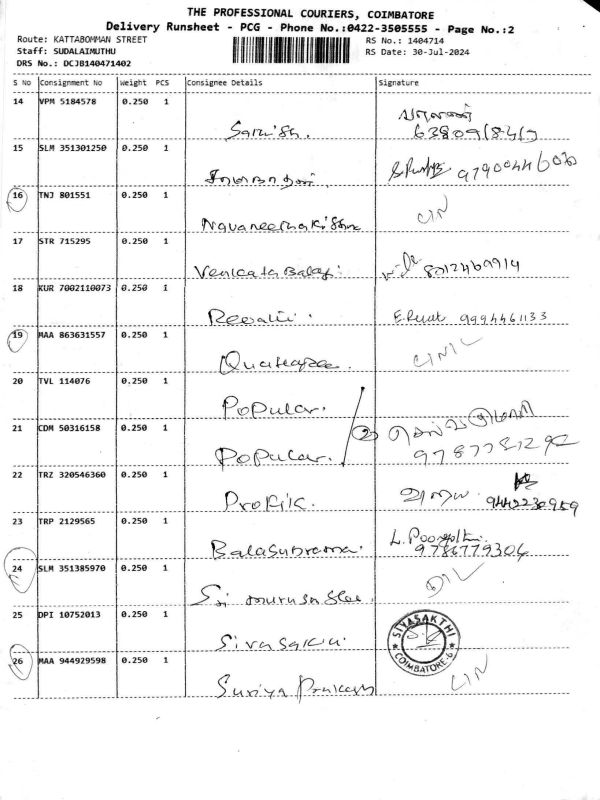 THE PROFESSIONAL COURIERS, COIMBATORE
Delivery Runsheet - PCG - Phone No.:0422-3505555 - Page No.:2
Route: KATTABOMMAN STREET
RS No.: 1404714
Staff: SUDALAIMUTHU
RS Date: 30-Jul-2024
DRS No.: DCJB140471402
S No Consignment No Weight PCS Consignee Details Signature
14 VPM 5184578 0.250 1
15 SLM 351301250 0.250 1
S. 9790044606
16 TNJ 801551 0.250 1
Navaneethakishna
17 STR 715295 0.250 1
Venkata Balaji 8212469914
18 KUR 7002110073 0.250 1
Revathi. 9994461133
19 MAA 863631557 0.250 1
20 TVL 114076 0.250 1
Popular.
21 CDM 50316158 0.250 1
Popular. 2
22 TRZ 320546360 0.250 1
Profik. 9442230959
23 TRP 2129565 0.250 1
Balasubrama. L. 9786779304
24 SLM 351385970 0.250 1
Sri
25 DPI 10752013 0.250 1
Sivasakthi
SIVASAKTHI
COIMBATORE-6
26 MAA 944929598 0.250 1
Suriya Prakash